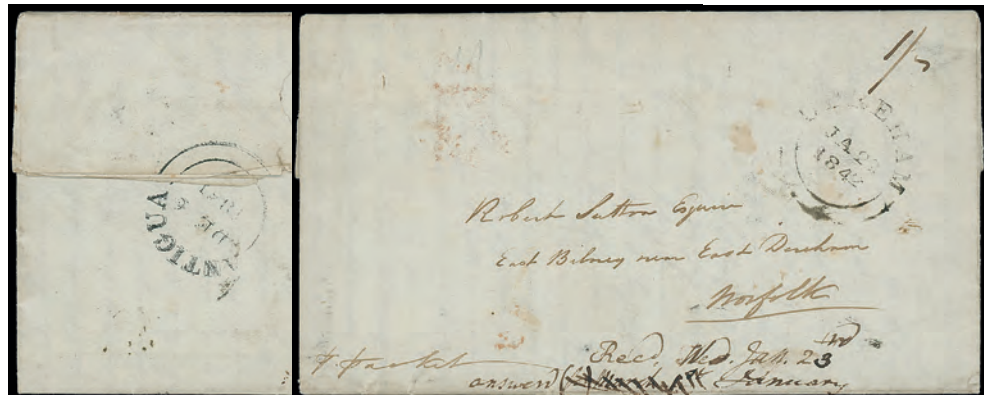 ANTIGUA
DE
1/2
EREHAM
JA 23
1842
Robert Sutton Esquire
East Bilney near East Dereham
Norfolk
p. Packet
Recd, Wed. Jan. 23rd
answerd January